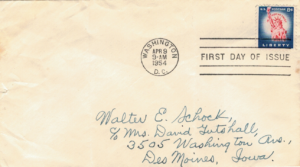 WASHINGTON
APR 9
9-AM
1954
D.C.
U.S. POSTAGE 8¢
LIBERTY
FIRST DAY OF ISSUE
Walter E. Schock,
c/o Mrs. David Tutshall,
3505 Washington Ave.,
Des Moines, Iowa.